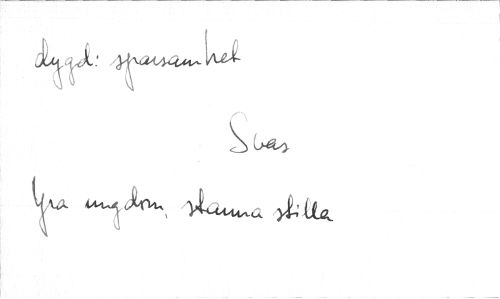 dygd: sparsamhet
Svas
Yra ungdom, stanna stilla